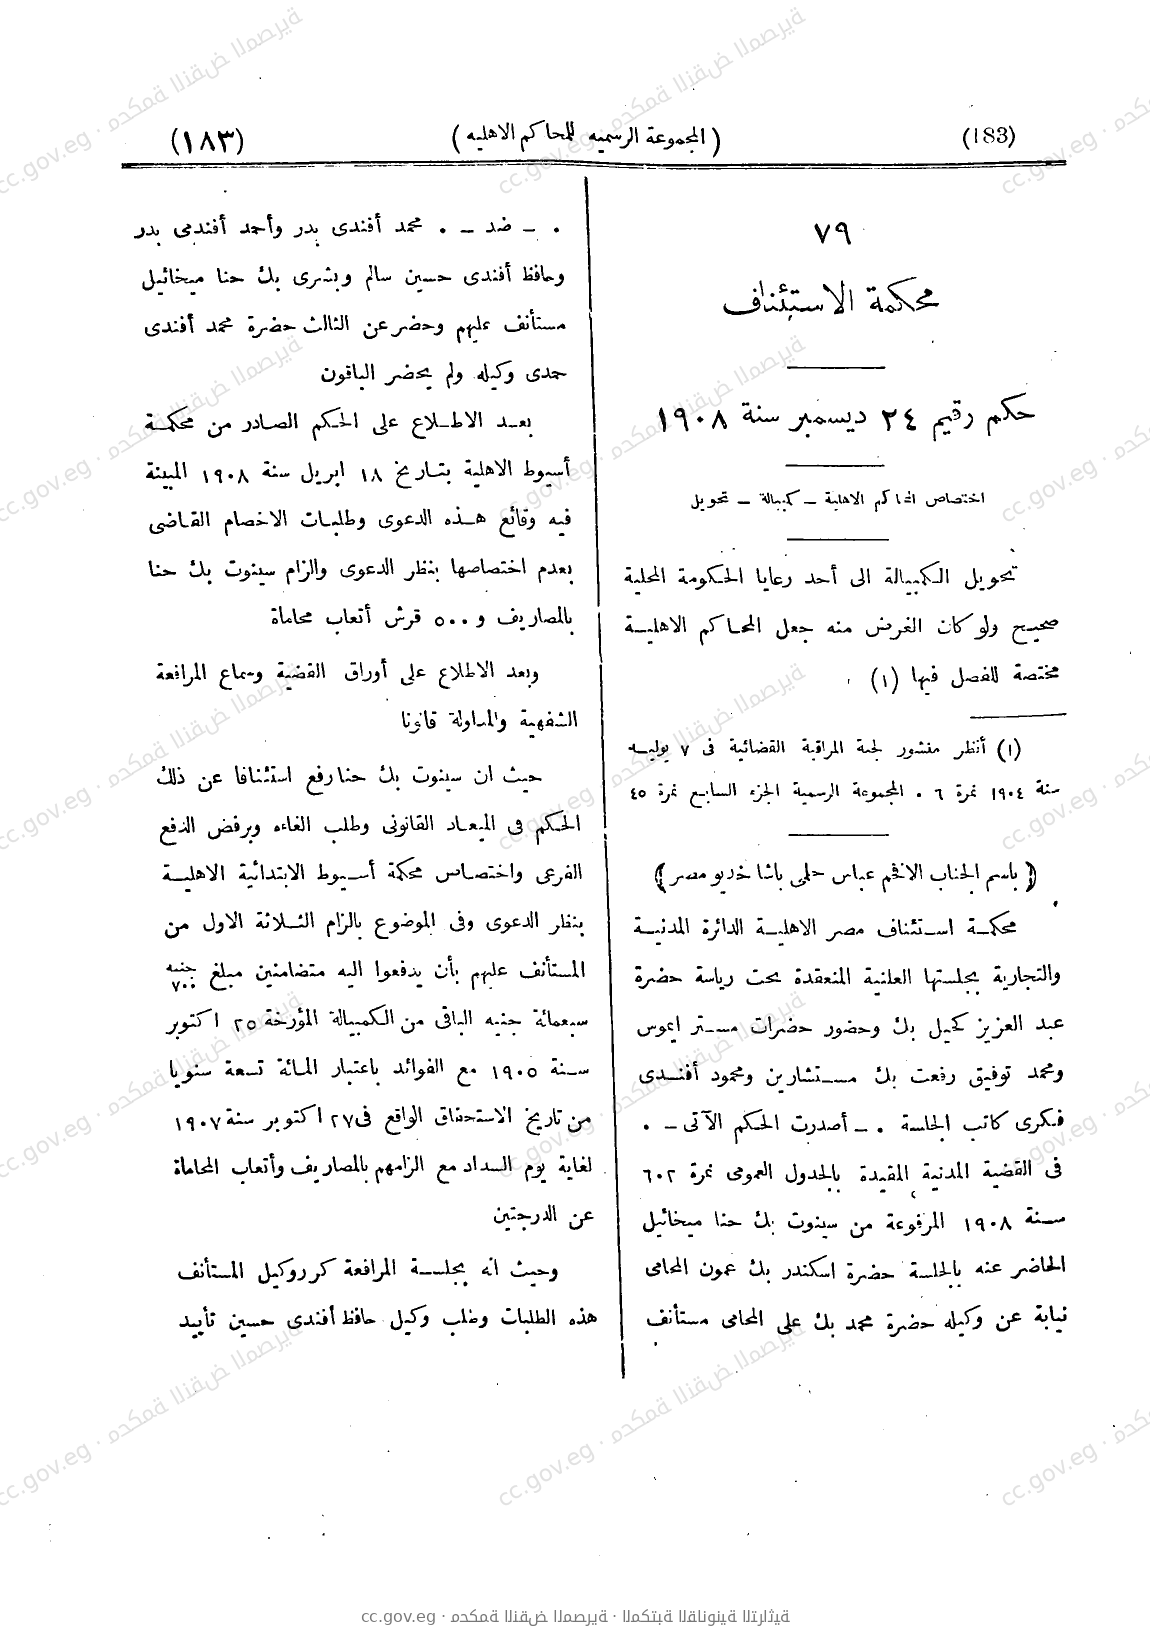 (183)
(المجموعة الرسميه للمحاكم الاهليه)
(١٨٣)
٧٩
محكمة الاستئناف
حكم رقيم ٢٤ ديسمبر سنة ١٩٠٨
اختصاص المحاكم الاهلية ــ كمبيالة ــ تحويل
تحويل الكمبيالة الى أحد رعايا الحكومة المحلية
صحيح ولو كان الغرض منه جعل المحاكم الاهلية
مختصة للفصل فيها (١)
(١) أنظر منشور لجنة المراقبة القضائية فى ٧ يوليه
سنة ١٩٠٤ نمرة ٦ . المجموعة الرسمية الجزء السابع نمرة ٤٥
(باسم الجناب الافخم عباس حلمى باشا خديو مصر)
محكمة استئناف مصر الاهلية الدائرة المدنية
والتجارية بجلستها العلنية المنعقدة تحت رياسة حضرة
عبد العزيز كحيل بك وحضور حضرات مستر ايموس
ومحمد توفيق رفعت بك مستشارين ومحمود أفندى
فكرى كاتب الجلسة . ــ أصدرت الحكم الآتى ــ .
فى القضية المدنية المقيدة بالجدول العمومى نمرة ٦٠٢
سنة ١٩٠٨ المرفوعة من سينوت بك حنا ميخائيل
الحاضر عنه بالجلسة حضرة اسكندر بك عمون المحامى
نيابة عن وكيله حضرة محمد بك على المحامى مستأنف
. ــ ضد ــ . محمد أفندى بدر وأحمد أفندى بدر
وحافظ أفندى حسين سالم وبشرى بك حنا ميخائيل
مستأنف عليهم وحضر عن الثالث حضرة محمد أفندى
حمدى وكيله ولم يحضر الباقون
بعد الاطلاع على الحكم الصادر من محكمة
أسيوط الاهلية بتاريخ ١٨ ابريل سنة ١٩٠٨ المبينة
فيه وقائع هذه الدعوى وطلبات الاخصام القاضى
بعدم اختصاصها بنظر الدعوى والزام سينوت بك حنا
بالمصاريف و ٥٠٠ قرش أتعاب محاماة
وبعد الاطلاع على أوراق القضية وسماع المرافعة
الشفهية والمداولة قانونا
حيث ان سينوت بك حنا رفع استئنافا عن ذلك
الحكم فى الميعاد القانونى وطلب الغاءه وبرفض الدفع
الفرعى واختصاص محكمة أسيوط الابتدائية الاهلية
بنظر الدعوى وفى الموضوع بالزام الثلاثة الاول من
المستأنف عليهم بأن يدفعوا اليه متضامنين مبلغ ٧٠٠ جنيه
سبعمائة جنيه الباقى من الكمبيالة المؤرخة ٢٥ اكتوبر
سنة ١٩٠٥ مع الفوائد باعتبار المائة تسعة سنويا
من تاريخ الاستحقاق الواقع فى ٢٧ اكتوبر سنة ١٩٠٧
لغاية يوم السداد مع الزامهم بالمصاريف وأتعاب المحاماة
عن الدرجتين
وحيث انه بجلسة المرافعة كرر وكيل المستأنف
هذه الطلبات وطلب وكيل حافظ أفندى حسين تأييد
cc.gov.eg · محكمة النقض المصرية · المكتبة القانونية التراثية